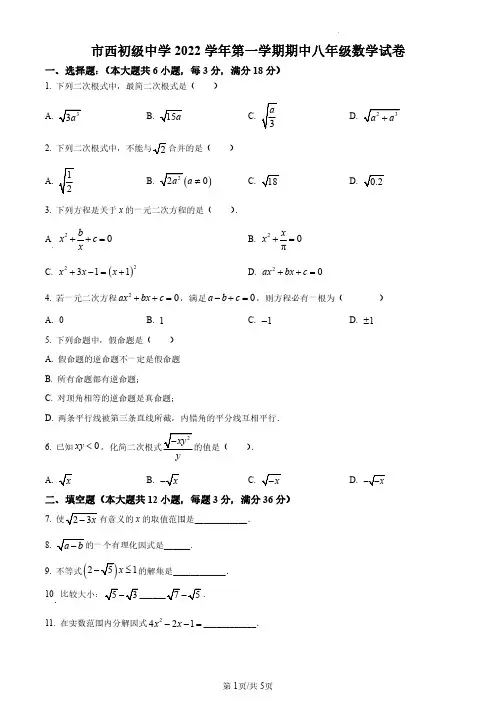 市西初级中学 2022 学年第一学期期中八年级数学试卷
一、选择题:(本大题共 6 小题,每 3 分,满分 18 分)
1. 下列二次根式中,最简二次根式是( )
A. √(3a³) B. √(15a) C. √(a/3) D. √(a²+a³)
2. 下列二次根式中,不能与√2合并的是( )
A. √(1/2) B. √(2a²)(a≠0) C. √18 D. √0.2
3. 下列方程是关于 x 的一元二次方程的是( ).
A. x²+b/x+c=0 B. x²+x/π=0
C. x²+3x−1=(x+1)² D. ax²+bx+c=0
4. 若一元二次方程ax²+bx+c=0,满足a−b+c=0,则方程必有一根为( )
A. 0 B. 1 C. −1 D. ±1
5. 下列命题中,假命题是( )
A. 假命题的逆命题不一定是假命题
B. 所有命题都有逆命题;
C. 对顶角相等的逆命题是真命题;
D. 两条平行线被第三条直线所截,内错角的平分线互相平行.
6. 已知xy<0,化简二次根式√(−xy²)/y的值是( ).
A. √x B. −√x C. √(−x) D. −√(−x)
二、填空题(本大题共 12 小题,每题 3 分,满分 36 分)
7. 使√(2−3x)有意义的 x 的取值范围是____________.
8. √(a−b)的一个有理化因式是______.
9. 不等式(2−√5)x≤1的解集是____________.
10. 比较大小:√5−√3______√7−√5.
11. 在实数范围内分解因式4x²−2x−1=____________.
第 1页/共 5页